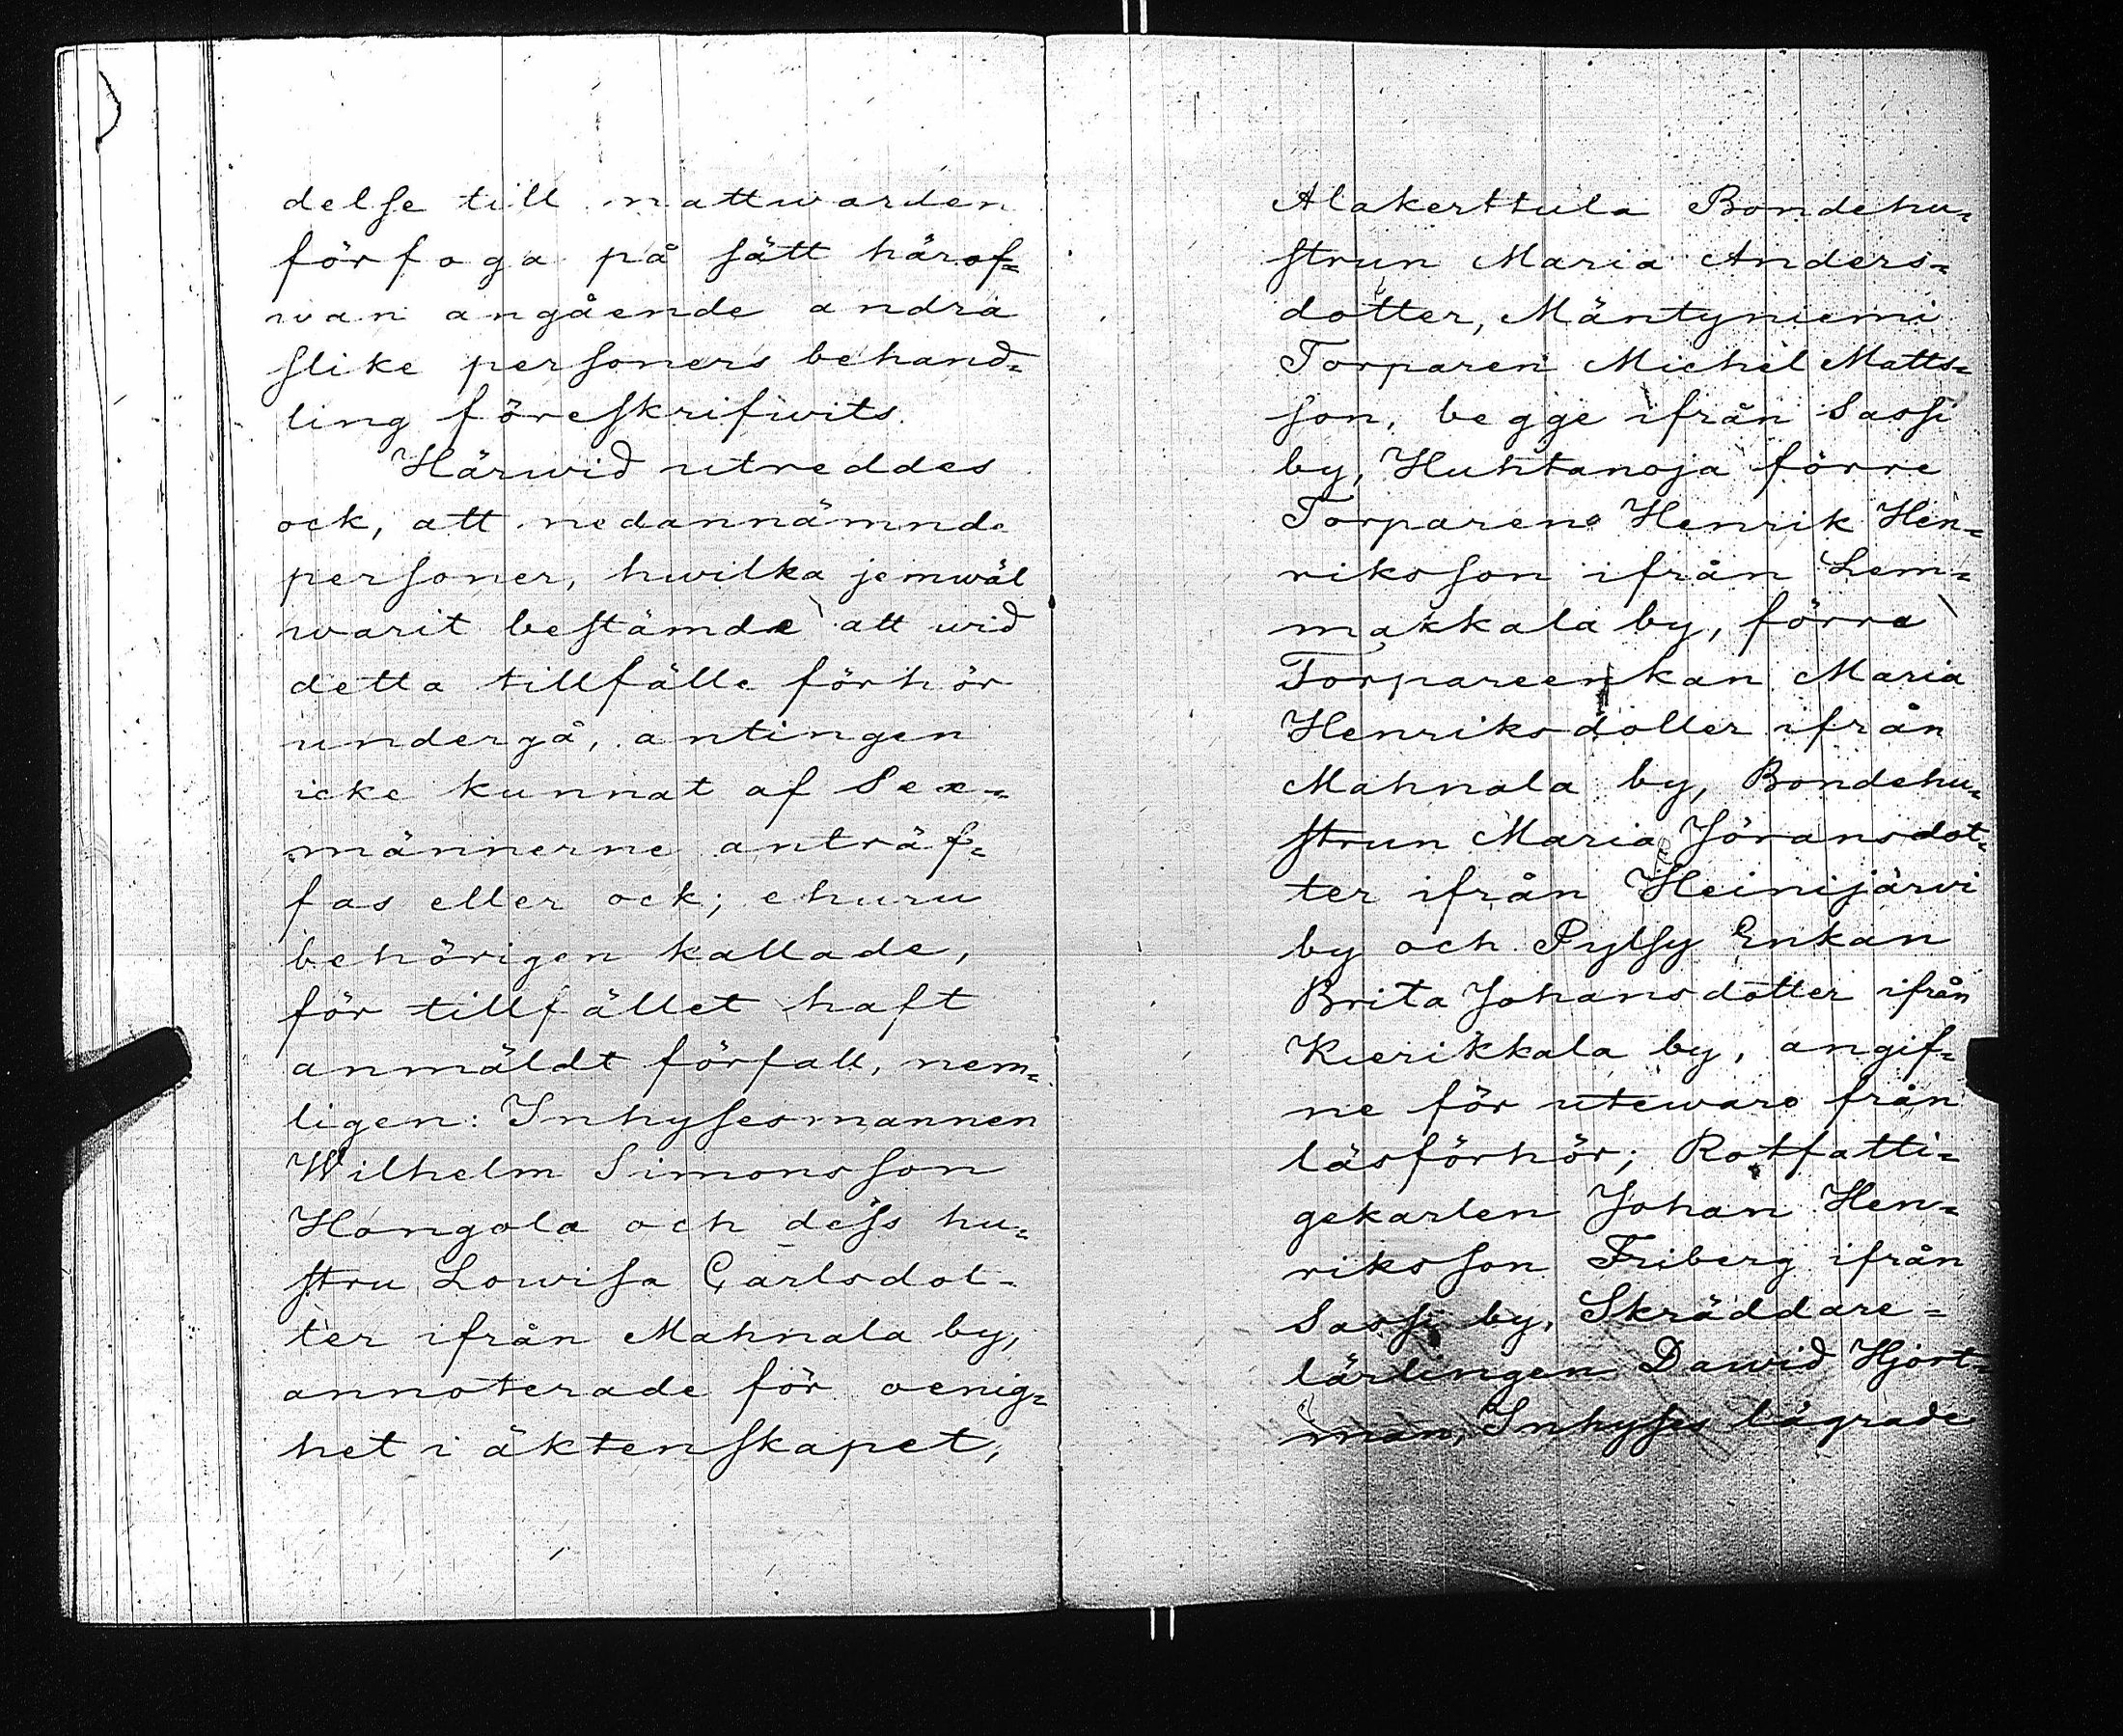 delse till nattwarden
förfoga på sätt härof=
wan angående andra
slike personers behand=
ling föreskrifwits.
Härwid utreddes
ock, att nedannämnde
personer, hwilka jemwäl
warit bestämde att wid
detta tillfälle förhör
undergå, antingen
icke kunnat af Sex=
männerne anträf=
fas eller ock; ehuru
behörigen kallade,
för tillfället haft
anmäldt förfall, nem=
ligen: Inhysesmannen
Wilhelm Simonsson
Hongola och dess hu=
stru Lowisa Carlsdot=
ter ifrån Mahnala by,
annoterade för oenig=
het i äktenskapet,
Alakerttula Bondehu=
strun Maria Anders=
dotter, Mäntyniemi
Torparen Michel Matts=
son, begge ifrån Sassi
by, Huhtanoja förre
Torparens Henrik Hen=
riksson ifrån Lem=
makkala by, förra
Torpareenkan Maria
Henriksdotter ifrån
Mahnala by, Bondehu=
strun Maria Jöransdot=
ter ifrån Heinijärwi
by och Pylsy Enkan
Brita Johansdotter ifrån
Kierikkala by, angif=
ne för utewaro från
läsförhör; Rotfatti=
gekarlen Johan Hen=
riksson Friberg ifrån
Sassi by, Skräddare=
lärlingen Dawid Hjort=
man, Inhyses lägrade